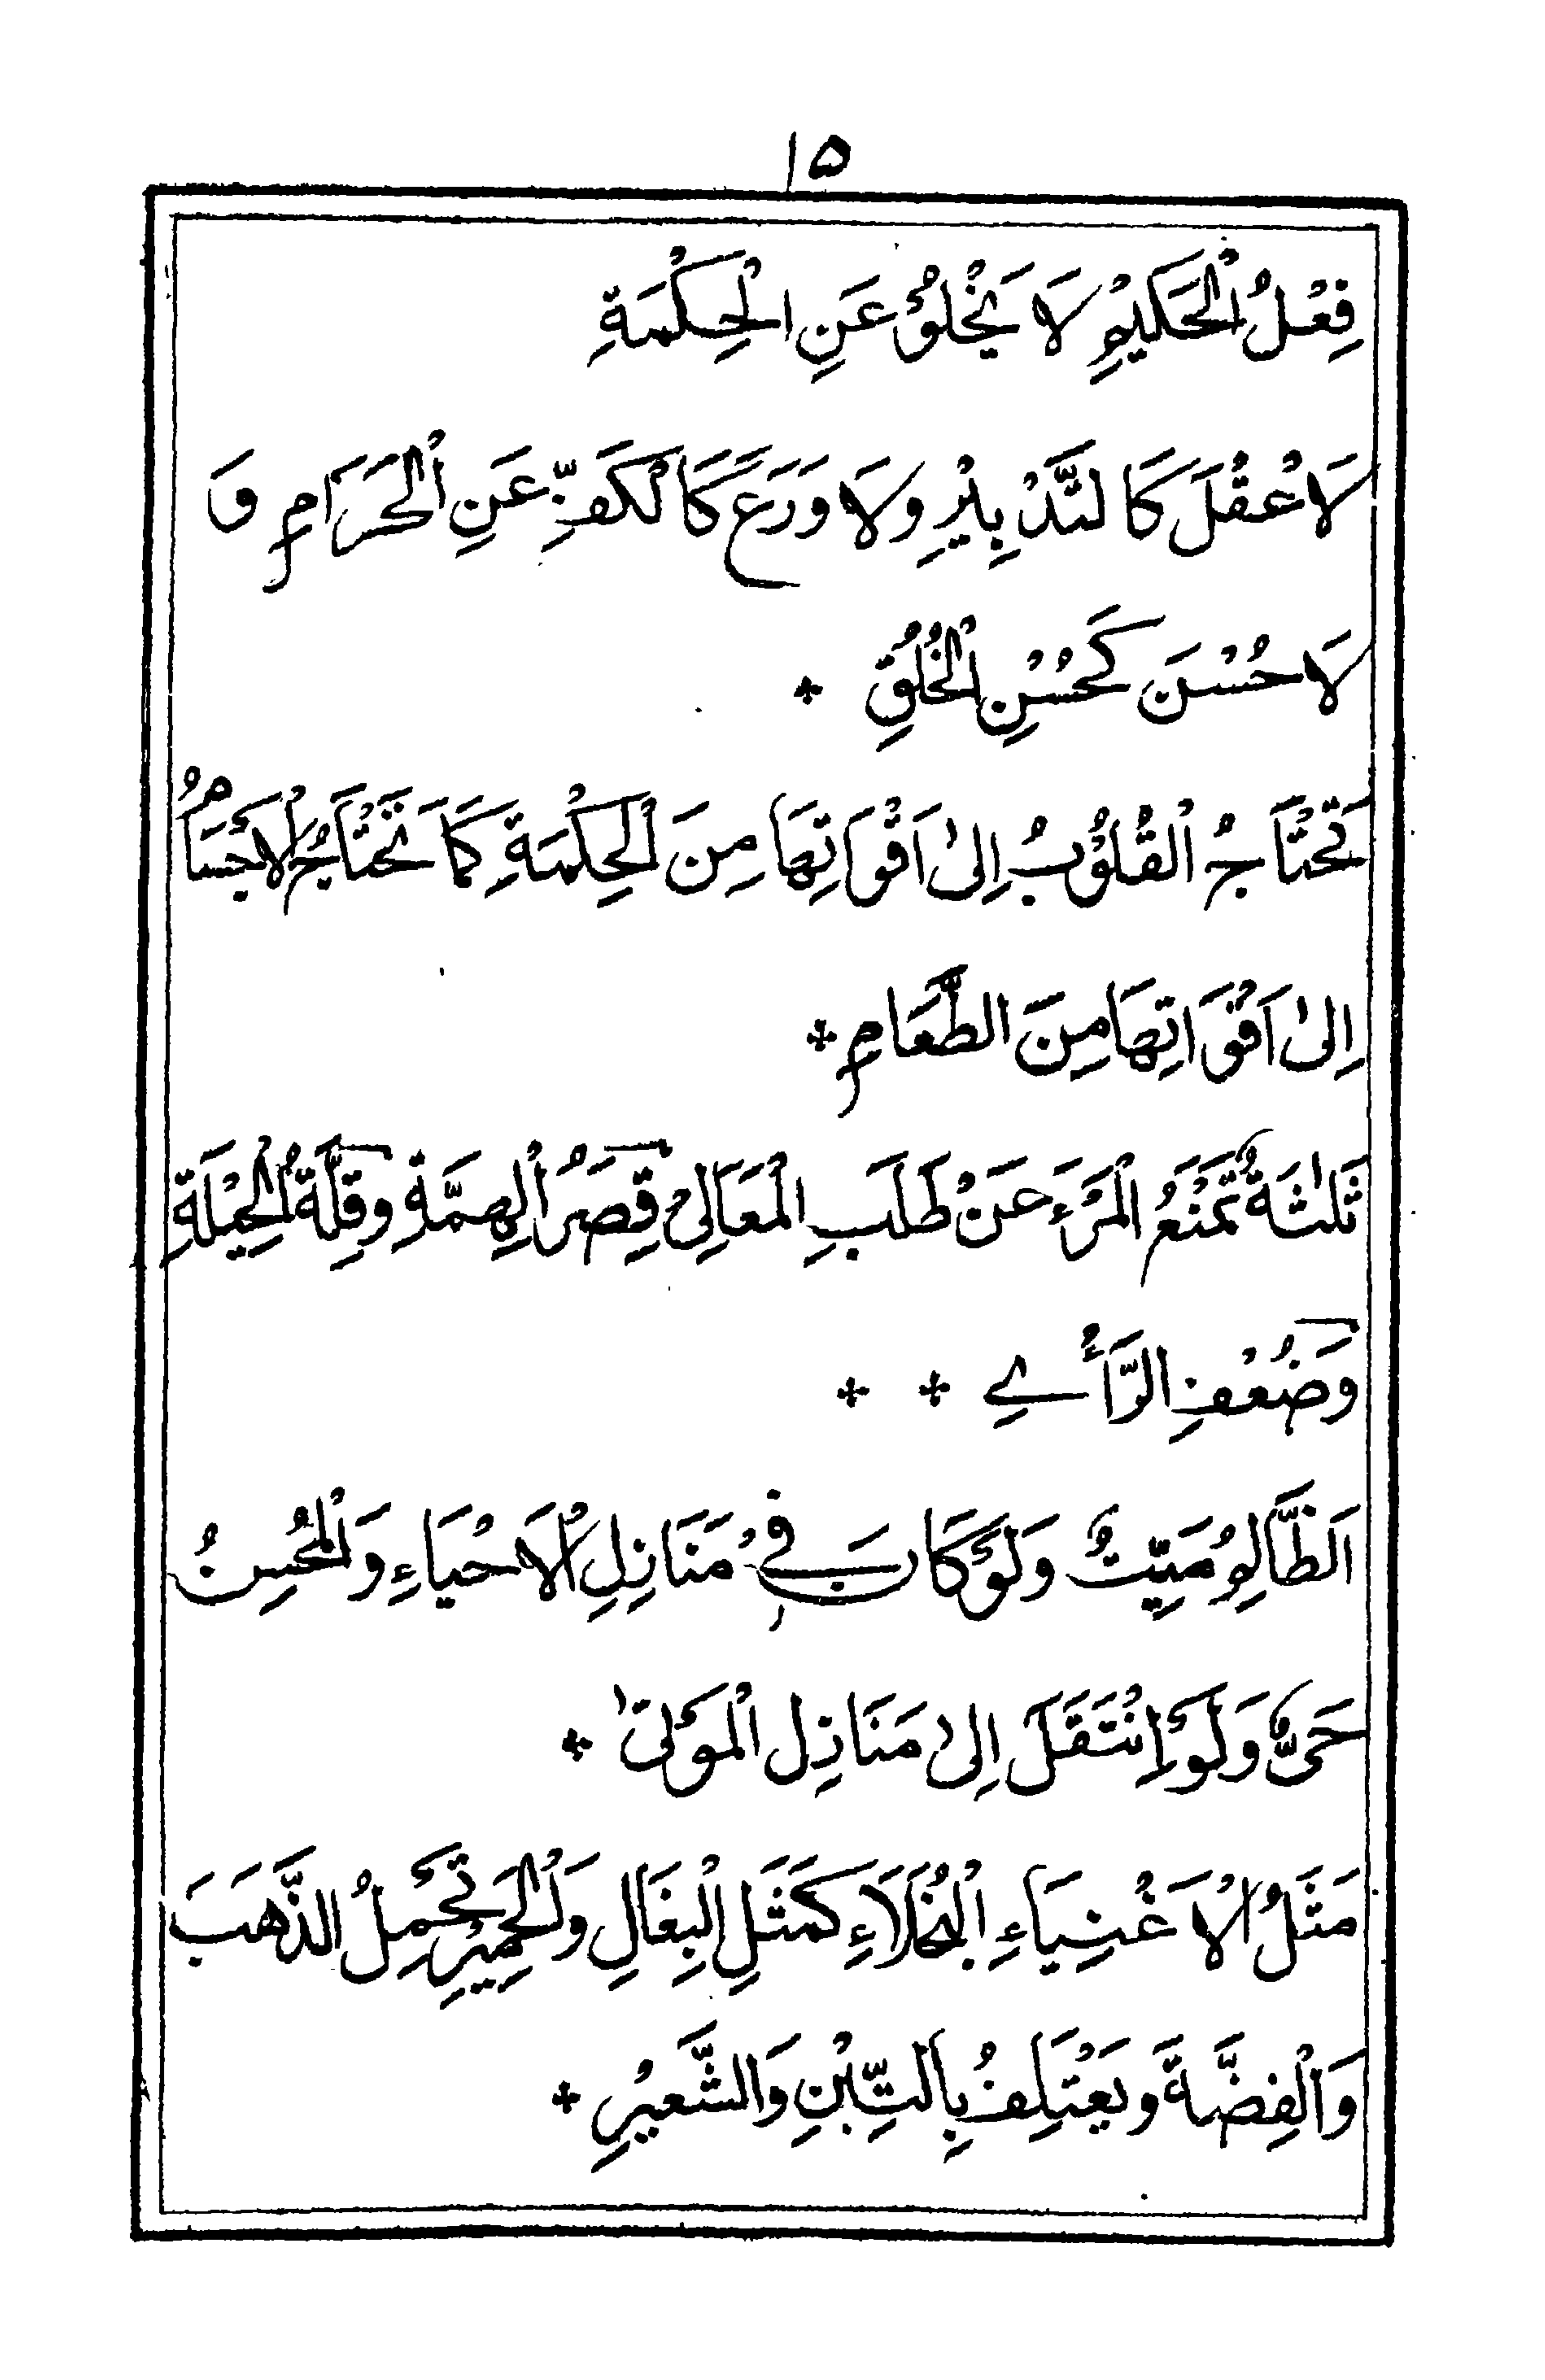 ١٥
فِعْلُ الْحَكِيْمِ لَا يَخْلُوْ عَنِ الْحِكْمَةِ
لَا عَقْلَ كَالتَّدْبِيْرِ وَلَا وَرَعَ كَالْكَفِّ عَنِ الْحَرَامِ وَ
لَا حُسْنَ كَحُسْنِ الْخُلُقِ
تَحْتَاجُ الْقُلُوْبُ اِلىٰ اَقْوَاتِهَا مِنَ الْحِكْمَةِ كَمَا تَحْتَاجُ الْاَجْسَامُ
اِلىٰ اَقْوَاتِهَا مِنَ الطَّعَامِ
ثَلٰثَةٌ تَمْنَعُ الْمَرْءَ عَنْ طَلَبِ الْمَعَالِىْ قِصَرُ الْهِمَّةِ وَقِلَّةُ الْحِيْلَةِ
وَضُعْفِ الرَّأْىِ
اَلظَّالِمُ مَيِّتٌ وَلَوْ كَانَ فِيْ مَنَازِلِ الْاَحْيَاءِ وَالْمُحْسِنُ
حَىٌّ وَلَوْ اِنْتَقَلَ اِلىٰ مَنَازِلِ الْمَوْتىٰ
مَثَلُ الْاَغْنِيَاءِ الْبُخَلَاءِ كَمَثَلِ الْبِغَالِ وَالْحَمِيْرِ تَحْمِلُ الذَّهَبَ
وَالْفِضَّةَ وَيَعْتَلِفُ بِالتِّبْنِ وَالشَّعِيْرِ